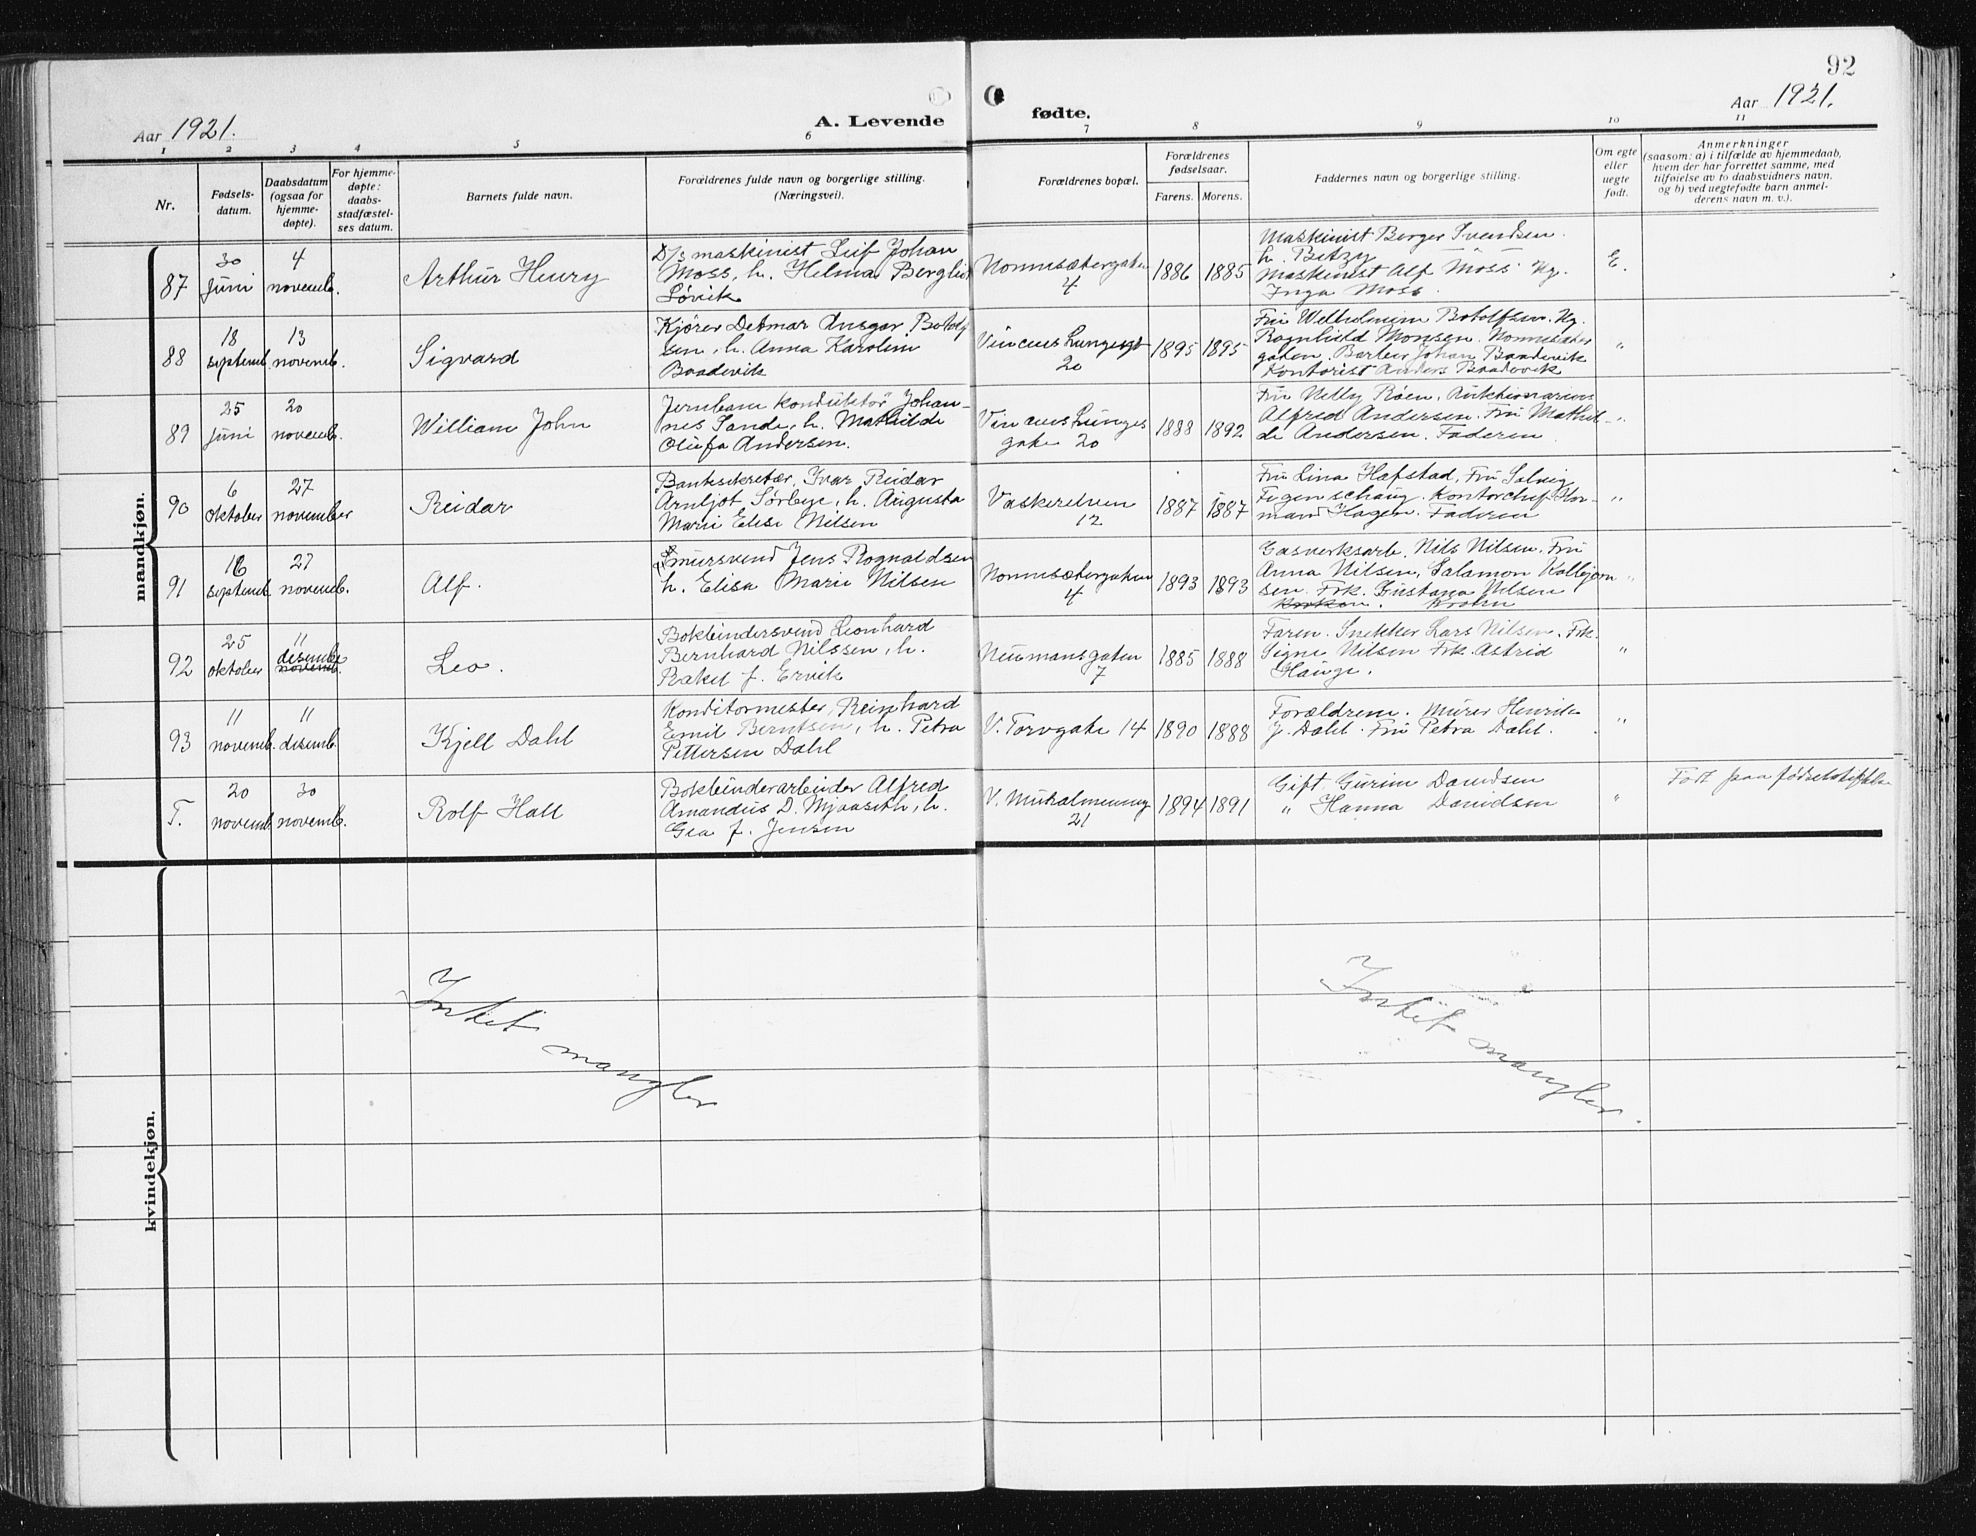 92
Aar 1921.
A. Levende
fødte.
Aar 1921.
1 2 3 4 5 6 7 8 9 10 11
Nr.
Fødsels-
datum.
Daabsdatum
(ogsaa for
hjemme-
døpte).
For hjemme-
døpte:
daabs-
stadfæstel-
ses datum.
Barnets fulde navn.
Forældrenes fulde navn og borgerlige stilling.
(Næringsvei).
Forældrenes bopæl.
Forældrenes
fødselsaar.
Farens. Morens.
Faddernes navn og borgerlige stilling.
Om egte
eller
uegte
født.
Anmerkninger
(saasom: a) i tilfælde av hjemmedaab,
hvem der har forrettet samme, med
tilføielse av to daabsvidners navn,
og b) ved uegtefødte barn anmel-
derens navn m. v.).
mandkjøn.
87
30
juni
4
novemb.
Arthur Henry
D/s maskinist Leif Johan
Moss, h. Helma Bergliot
Løvik
Nonnesætergaten
4
1886 1885
Maskinist Berger Svendsen.
h. Betzy
Maskinist Alf Moss. Hg.
Inga Moss.
E.
88
18
septemb.
13
novemb.
Sigvard
Kjører Detmar Ansgar Botolf
sen, h. Anna Karoline
Baadevik
Vincens Lungesgt
20
1895 1895
Fru Welhelmine Botolfsen. Hg.
Ragnhild Monsen. Nonnesæter
gaten. Barber Johan Baadevik
Kontorist Anders Baadevik
"
89
25
juni
20
novemb.
William John
Jernbane konduktør Johan-
nes Sande, h. Mathilde
Olufa Andersen.
Vincens Lunges
gate 20
1888 1892
Fru Nelly Røen, Auktionarius
Alfred Andersen. Fru Mathil-
de Andersen. Faderen
"
90
6
oktober
27
november
Reidar
Banksekretær, Ivar Reidar
Arnljot Sørbye, h. Augusta
Marie Elise Nilsen
Vaskerelven
12
1887 1887
Fru Lina Hafstad, Fru Solveig
Figenschaug. Kontorchef Nor-
mann Hagen. Faderen
"
91
16
septemb.
27
novemb.
Alf.
mursvend Jens Rognaldsen
h. Elisa Marie Nilsen
Nonnesætergaten
4
1893 1893
Gasverksarb. Nils Nilsen. Fru
Anna Nilsen, Salamon Kollejorn
sen. Frk. Gustava Nilsen
"
92
25
oktober
11
desembr
novemb.
Leo.
Bokbindersvend Leonhard
Bernhard Nilssen, h.
Rakel f. Ervik
Neumansgaten
7
1885 1888
Faren. Snekker Lars Nilsen. Frk.
Signe Nilsen Frk. Astrid
Hauge.
"
93
11
novemb.
11
desemb.
Kjell Dahl
Konditormester, Reinhard
Emil Berntsen, h. Petra
Pettersen Dahl
V. Torvgate 14
1890 1888
Forældrene. Murer Henrik
J. Dahl. Fru Petra Dahl.
"
T.
20
novemb.
30
novemb.
Rolf Hall
Bokbinderarbeider Alfred
Amandus D. Mjaaseth, h.
Gea f. Jensen
21
1894 1891
Gift. Gurine Davidsen
" Hanna Davidsen
"
Født paa
kvindekjøn.
Intet mangler
Intet mangler.